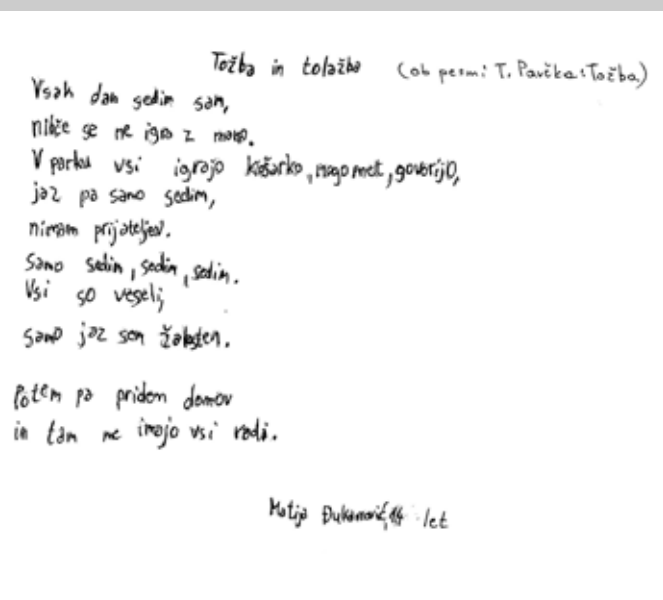 Tožba in tolažba (ob pesmi T. Pavčka: Tožba)
Vsak dan sedim sam,
nihče se ne igra z mano.
V parku vsi igrajo košarko, nogomet, govorijo,
jaz pa samo sedim,
nimam prijateljev.
Samo sedim, sedim, sedim.
Vsi so veseli,
samo jaz sem žalosten.
Potem pa pridem domov
in tam me imajo vsi radi.
Matija Đukanović, 14 let